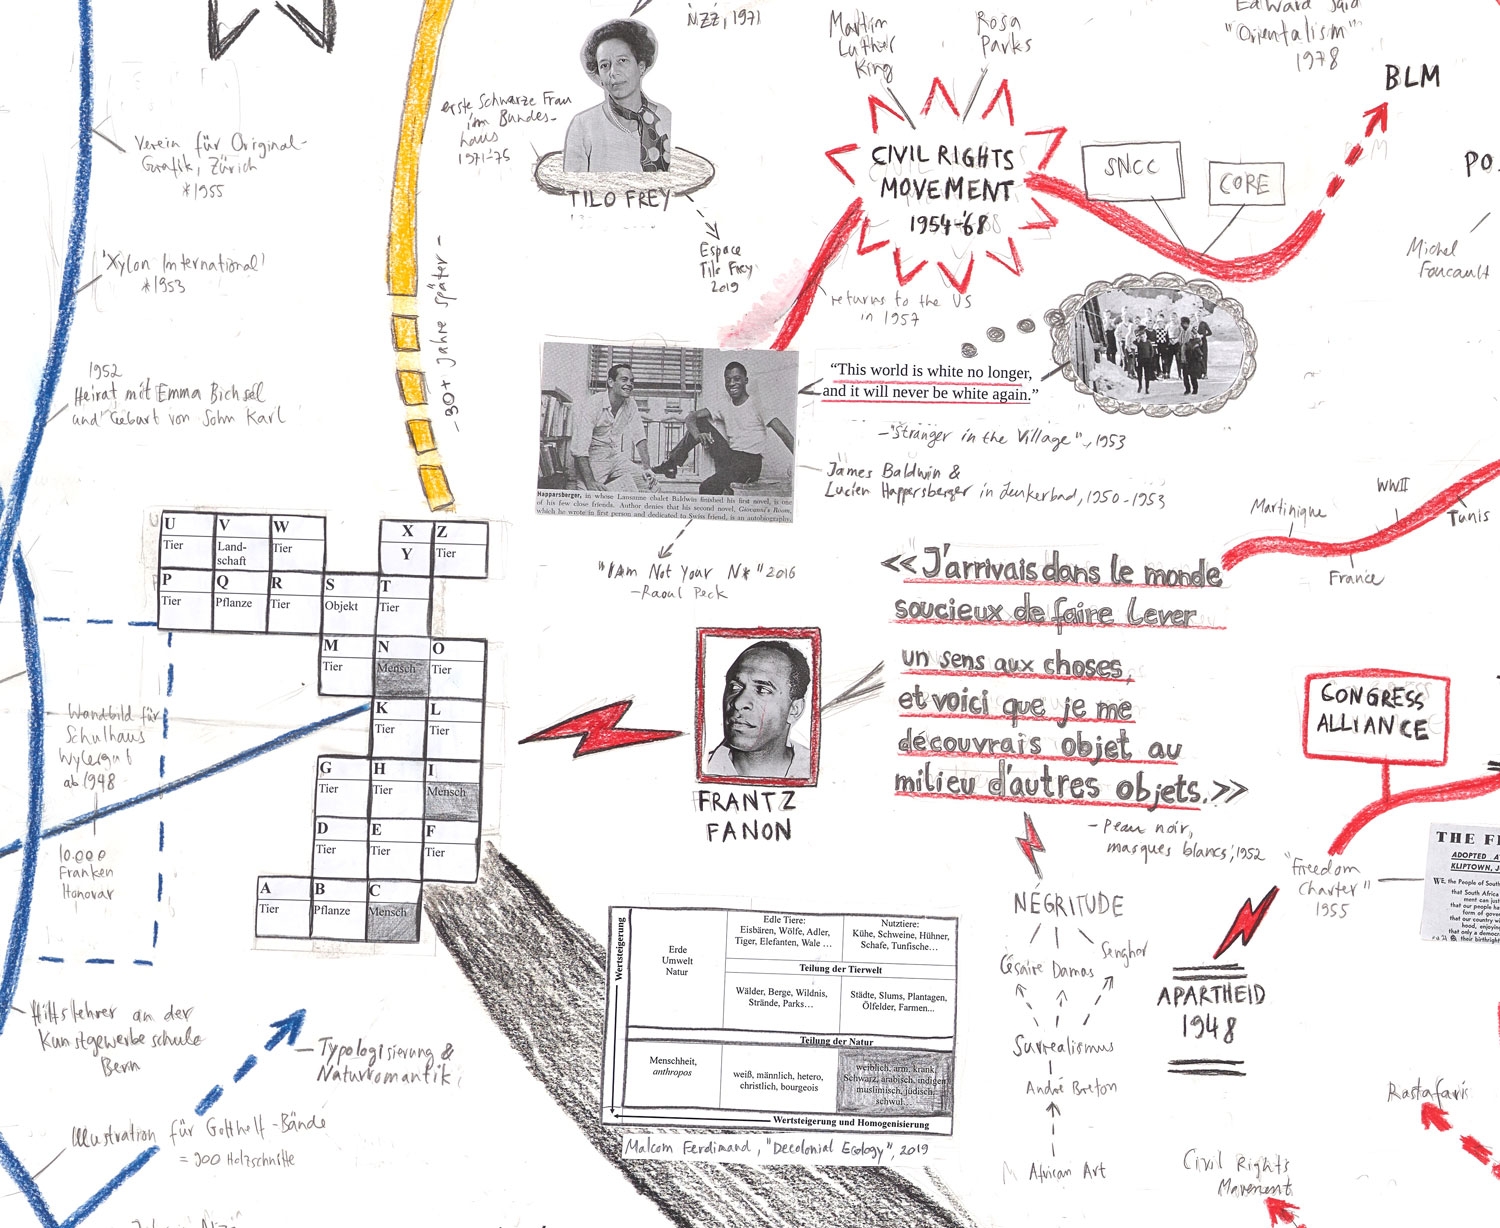 NZZ, 1971
Martin
Luther
King
Rosa
Parks
Edward Said
"Orientalism"
1978
BLM
erste Schwarze Frau
im Bundes-
haus
1971-75
TILO FREY
Espace
Tilo Frey
2019
CIVIL RIGHTS
MOVEMENT
1954-'68
SNCC
CORE
PO
Michel
Foucault
Verein für Original-
Grafik, Zürich
*1955
'Xylon International'
*1953
1952
Heirat mit Emma Bichsel
und Geburt von Sohn Karl
-30+ Jahre später-
returns to the US
in 1957
"This world is white no longer,
and it will never be white again."
-"Stranger in the Village", 1953
James Baldwin &
Lucien Happersberger in Leukerbad, 1950-1953
Happersberger, in whose Lausanne chalet Baldwin finished his first novel, is one
of his few close friends. Author denies that his second novel, Giovanni's Room,
which he wrote in first person and dedicated to Swiss friend, is an autobiography.
"I Am Not Your N*" 2016
-Raoul Peck
Martinique
WWII
Tunis
France
U V W X Z
Tier Land- Tier Y Tier
schaft
P Q R S T
Tier Pflanze Tier Objekt Tier
M N O
Tier Mensch Tier
K L
Tier Tier
G H I
Tier Tier Mensch
D E F
Tier Tier Tier
A B C
Tier Pflanze Mensch
FRANTZ
FANON
<<J'arrivais dans le monde
soucieux de faire lever
un sens aux choses,
et voici que je me
découvrais objet au
milieu d'autres objets.>>
-Peau noir,
masques blancs, 1952
CONGRESS
ALLIANCE
"Freedom
Charter"
1955
THE F
ADOPTED A
KLIPTOWN, J
WE, the People of Sout
that South Africa
ment can just
that our people ha
form of gove
that our country w
hood, enjoying
that only a democr
their birthrigh
Wandbild für
Schulhaus
Wylergut
ab 1948
10.000
Franken
Honorar
Hilfslehrer an der
Kunstgewerbeschule
Bern
Typologisierung &
Naturromantik
Illustration für Gotthelf-Bände
= 200 Holzschnitte
Wertsteigerung
Erde
Umwelt
Natur
Edle Tiere:
Eisbären, Wölfe, Adler,
Tiger, Elefanten, Wale …
Nutztiere:
Kühe, Schweine, Hühner,
Schafe, Tunfische…
Teilung der Tierwelt
Wälder, Berge, Wildnis,
Strände, Parks…
Städte, Slums, Plantagen,
Ölfelder, Farmen...
Teilung der Natur
Menschheit,
anthropos
weiß, männlich, hetero,
christlich, bourgeois
weiblich, arm, krank,
Schwarz, arabisch, indigen,
muslimisch, jüdisch,
schwul…
Wertsteigerung und Homogenisierung
Malcom Ferdinand, "Decolonial Ecology", 2019
NÉGRITUDE
Césaire
Damas
Senghor
Surrealismus
André Breton
African Art
APARTHEID
1948
Rastafaris
Civil Rights
Movement